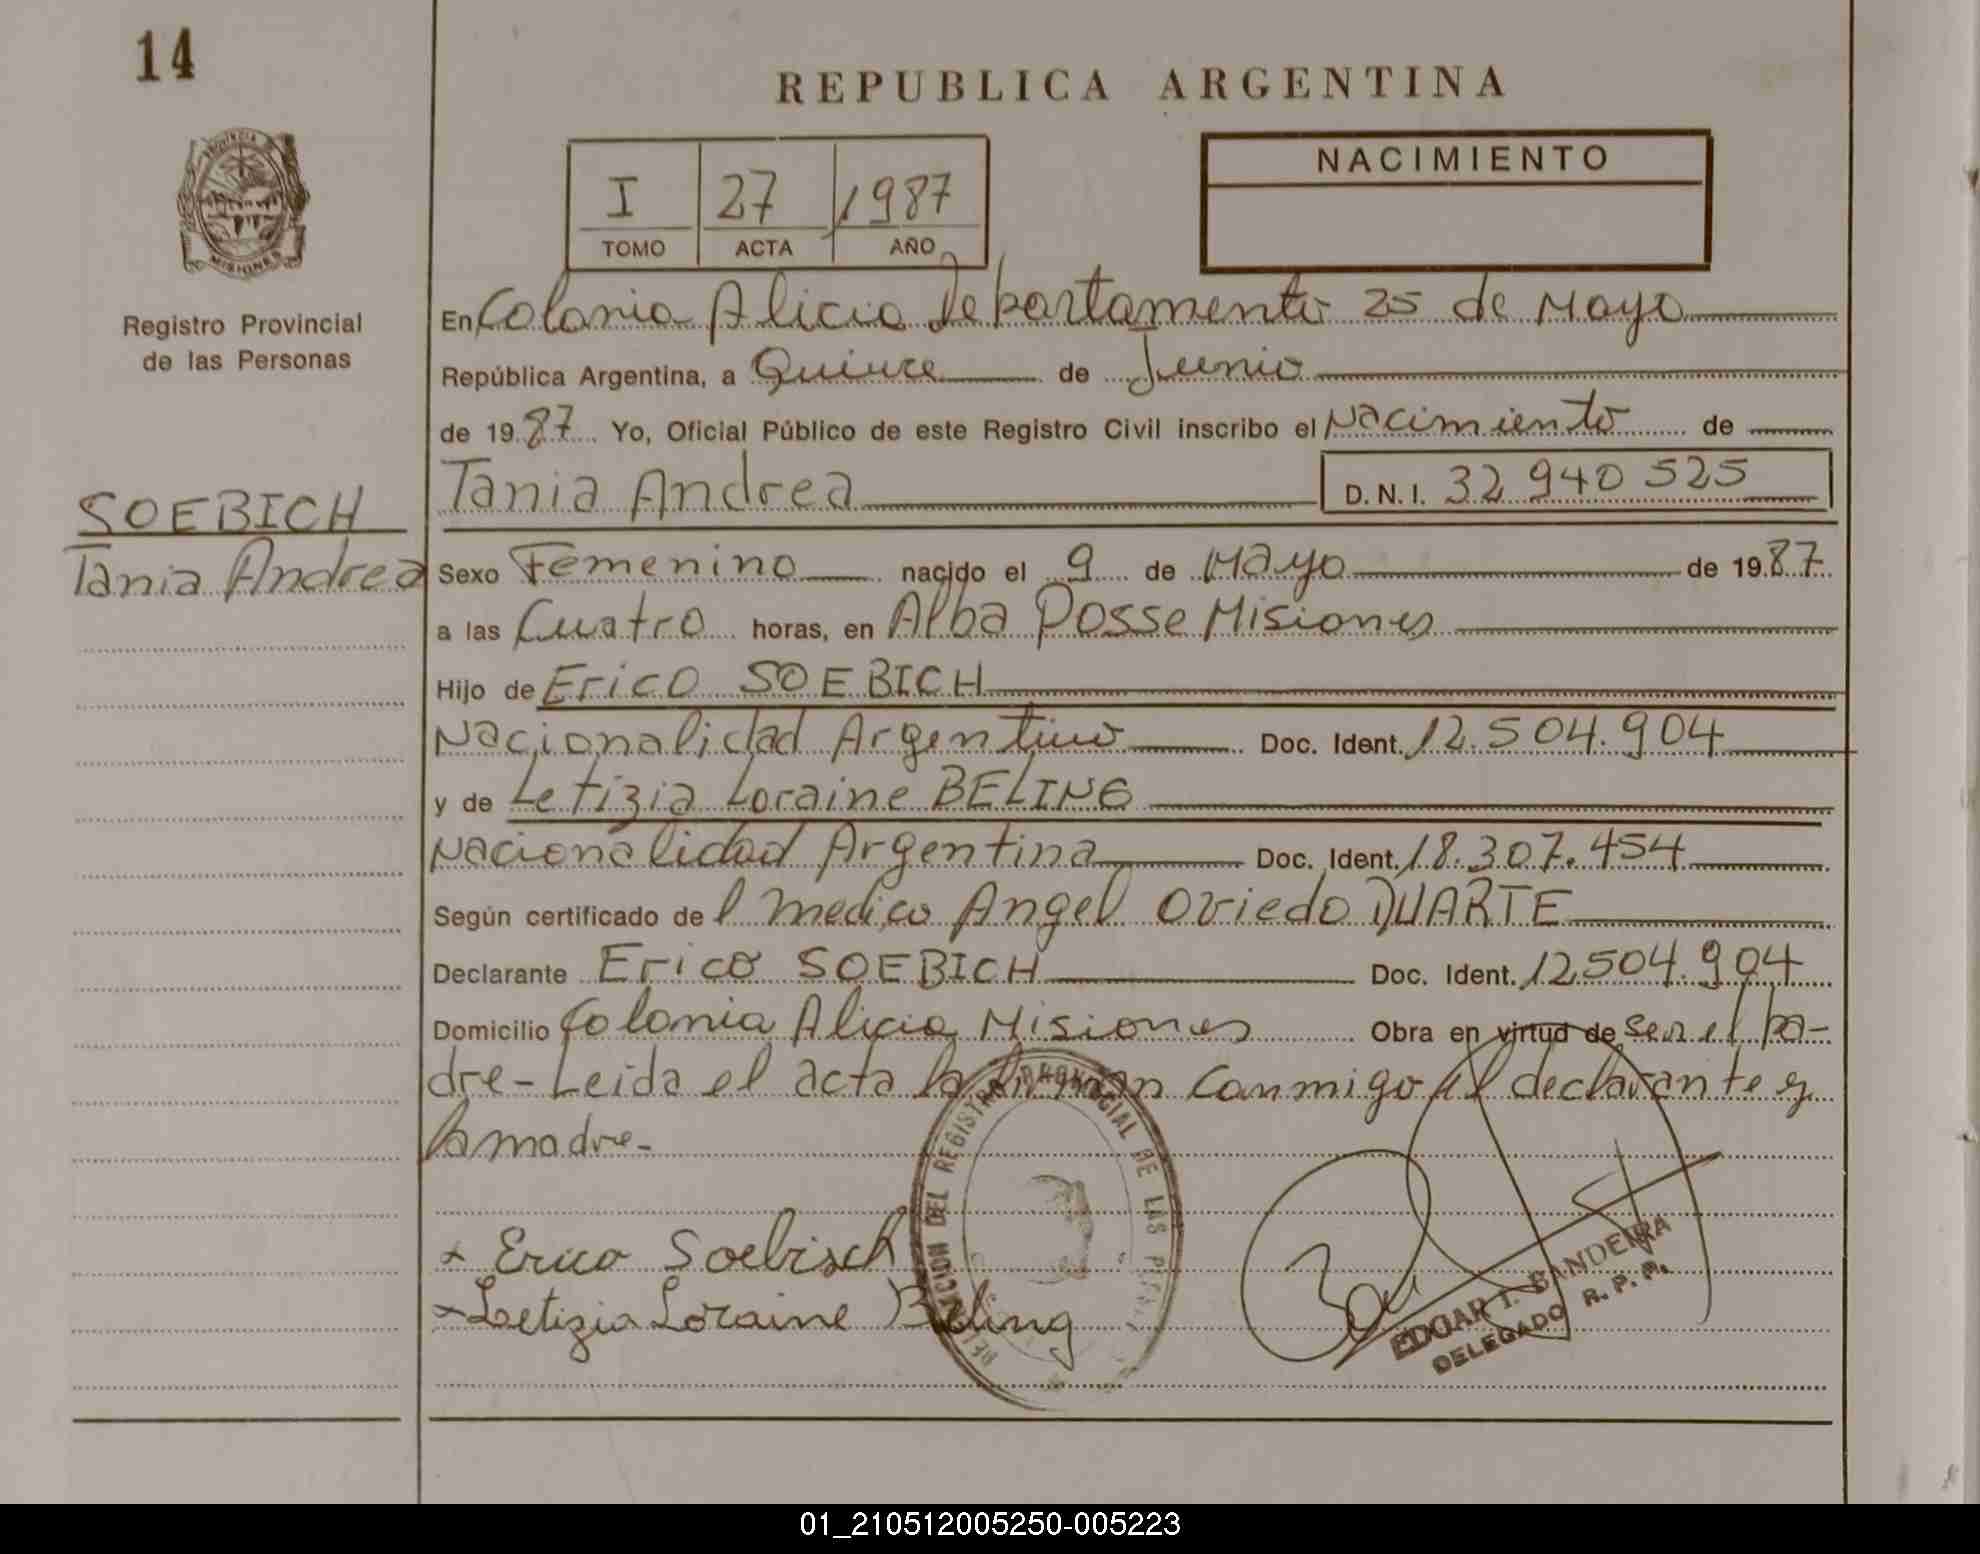 14
REPUBLICA ARGENTINA
PROVINCIA DE
MISIONES
Registro Provincial
de las Personas
I 27 1987
TOMO ACTA AÑO
NACIMIENTO
En Colonia Alicia Departamento 25 de Mayo
República Argentina, a Quince de Junio
de 1987 Yo, Oficial Público de este Registro Civil inscribo el Nacimiento de
Tania Andrea D.N.I. 32 940 525
SOEBICH
Tania Andrea
Sexo Femenino nacido el 9 de Mayo de 1987
a las Cuatro horas, en Alba Posse Misiones
Hijo de Erico SOEBICH
Nacionalidad Argentino Doc. Ident. 12.504.904
y de Letizia Loraine BELING
Nacionalidad Argentina Doc. Ident. 18.307.454
Según certificado del medico Angel Oviedo DUARTE
Declarante Erico SOEBICH Doc. Ident. 12504.904
Domicilio Colonia Alicia Misiones Obra en virtud de ser el pa-
dre- Leida el acta la firman conmigo el declarante y
la madre-
Erico Soebisch
Letizia Loraine Beling
DEL REGISTRO PROVINCIAL DE LAS
EDGAR I. BANDEIRA
DELEGADO R. P. P.
01_210512005250-005223